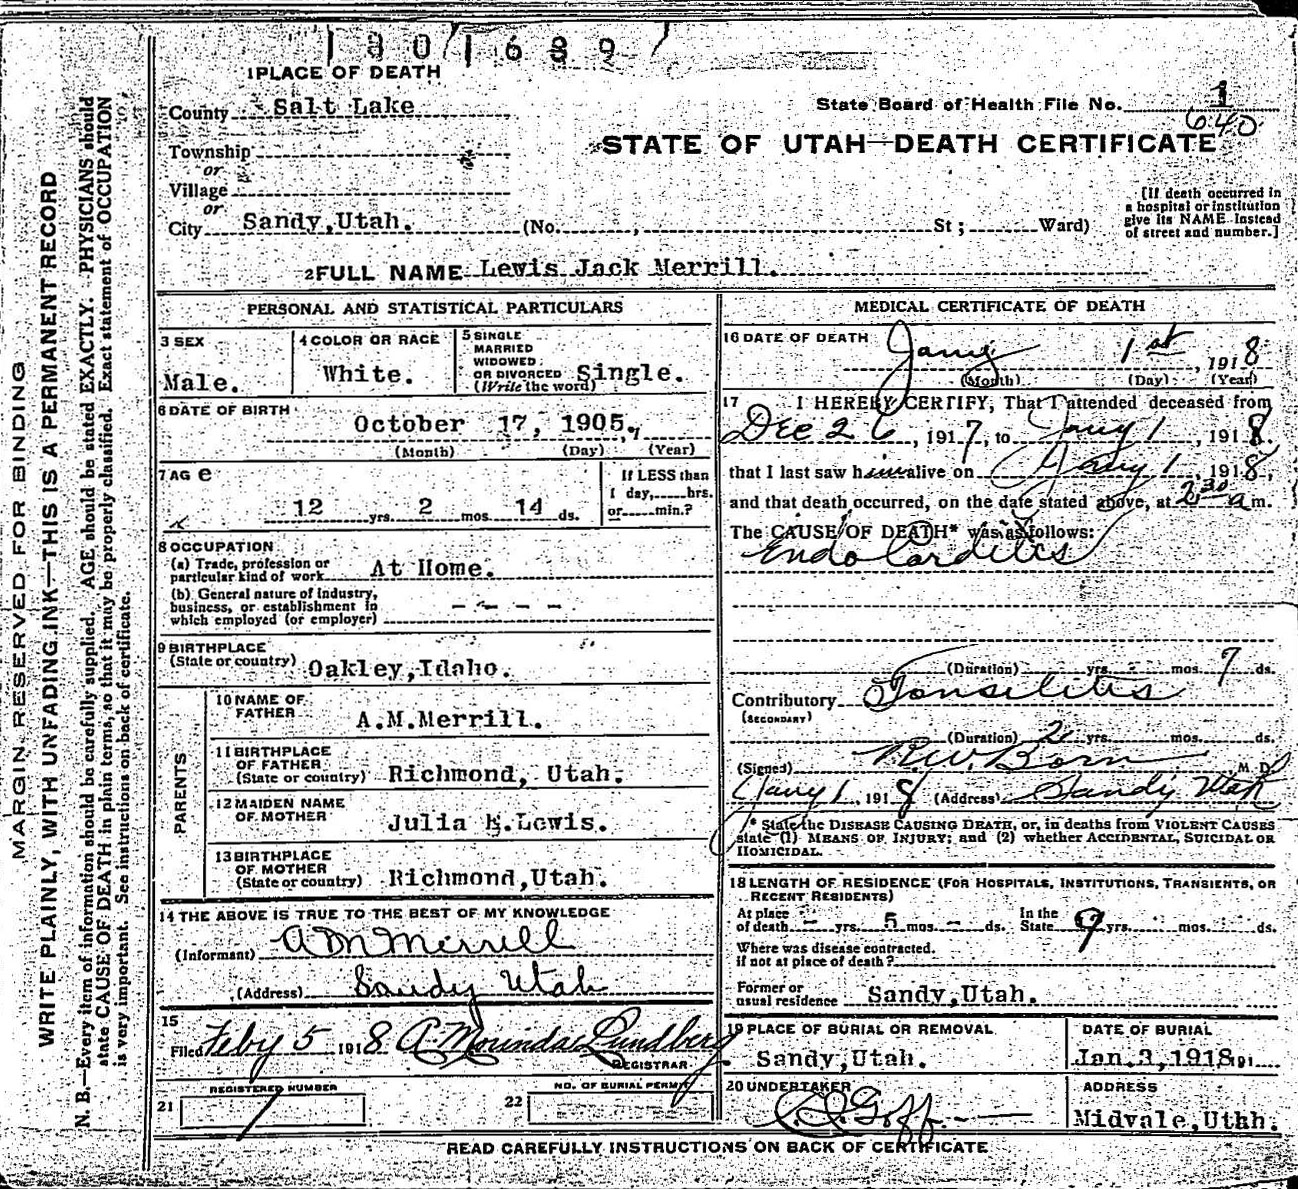 1801689
1 PLACE OF DEATH
County Salt Lake
State Board of Health File No. 1
640
Township
or
Village
or
City Sandy,Utah. (No. , St; Ward)
STATE OF UTAH—DEATH CERTIFICATE
[If death occurred in
a hospital or institution
give its NAME instead
of street and number.]
2 FULL NAME Lewis Jack Merrill.
PERSONAL AND STATISTICAL PARTICULARS
3 SEX
Male.
4 COLOR OR RACE
White.
5 SINGLE
MARRIED
WIDOWED
OR DIVORCED
(Write the word)
Single.
6 DATE OF BIRTH
October 17, 1905.
(Month) (Day) (Year)
7 AGe
12 yrs. 2 mos. 14 ds.
If LESS than
1 day,.....hrs.
or.....min.?
8 OCCUPATION
(a) Trade, profession or
particular kind of work At Home.
(b) General nature of industry,
business, or establishment in
which employed (or employer) - - - - -
9 BIRTHPLACE
(State or country) Oakley,Idaho.
PARENTS
10 NAME OF
FATHER A.M.Merrill.
11 BIRTHPLACE
OF FATHER
(State or country) Richmond, Utah.
12 MAIDEN NAME
OF MOTHER Julia E.Lewis.
13 BIRTHPLACE
OF MOTHER
(State or country) Richmond,Utah.
14 THE ABOVE IS TRUE TO THE BEST OF MY KNOWLEDGE
(Informant) A M Merrill
(Address) Sandy Utah
15
Filed Feby 5 1918 A Mourindae Lundberg
REGISTRAR
REGISTERED NUMBER
21 1
NO. OF BURIAL PERMIT
22
MEDICAL CERTIFICATE OF DEATH
16 DATE OF DEATH Jany 1st, 1918
(Month) (Day) (Year)
17 I HEREBY CERTIFY, That I attended deceased from
Dec 26, 1917, to Jany 1, 1918.
that I last saw him alive on Jany 1, 1918,
and that death occurred, on the date stated above, at 2 30 a m.
The CAUSE OF DEATH* was as follows:
Endo Carditis
(Duration) yrs. - mos. 7 ds.
Contributory Tonselitis
(SECONDARY)
(Duration) 2 yrs. mos. ds.
(Signed) R.W. Born M. D.
Jany 1, 1918 (Address) Sandy Utah
* State the DISEASE CAUSING DEATH, or, in deaths from VIOLENT CAUSES
state (1) MEANS OF INJURY; and (2) whether ACCIDENTAL, SUICIDAL OR
HOMICIDAL.
18 LENGTH OF RESIDENCE (FOR HOSPITALS, INSTITUTIONS, TRANSIENTS, OR
RECENT RESIDENTS)
At place
of death - yrs. 5 mos. - ds.
In the
State 9 yrs. mos. ds.
Where was disease contracted.
if not at place of death?
Former or
usual residence Sandy,Utah.
19 PLACE OF BURIAL OR REMOVAL
Sandy,Utah.
DATE OF BURIAL
Jan.3,1918,191
20 UNDERTAKER
Goff
ADDRESS
Midvale,Uthh.
READ CAREFULLY INSTRUCTIONS ON BACK OF CERTIFICATE
MARGIN RESERVED FOR BINDING
WRITE PLAINLY, WITH UNFADING INK—THIS IS A PERMANENT RECORD
N. B.—Every item of information should be carefully supplied. AGE should be stated EXACTLY. PHYSICIANS should
state CAUSE OF DEATH in plain terms, so that it may be properly classified. Exact statement of OCCUPATION
is very important. See instructions on back of certificate.